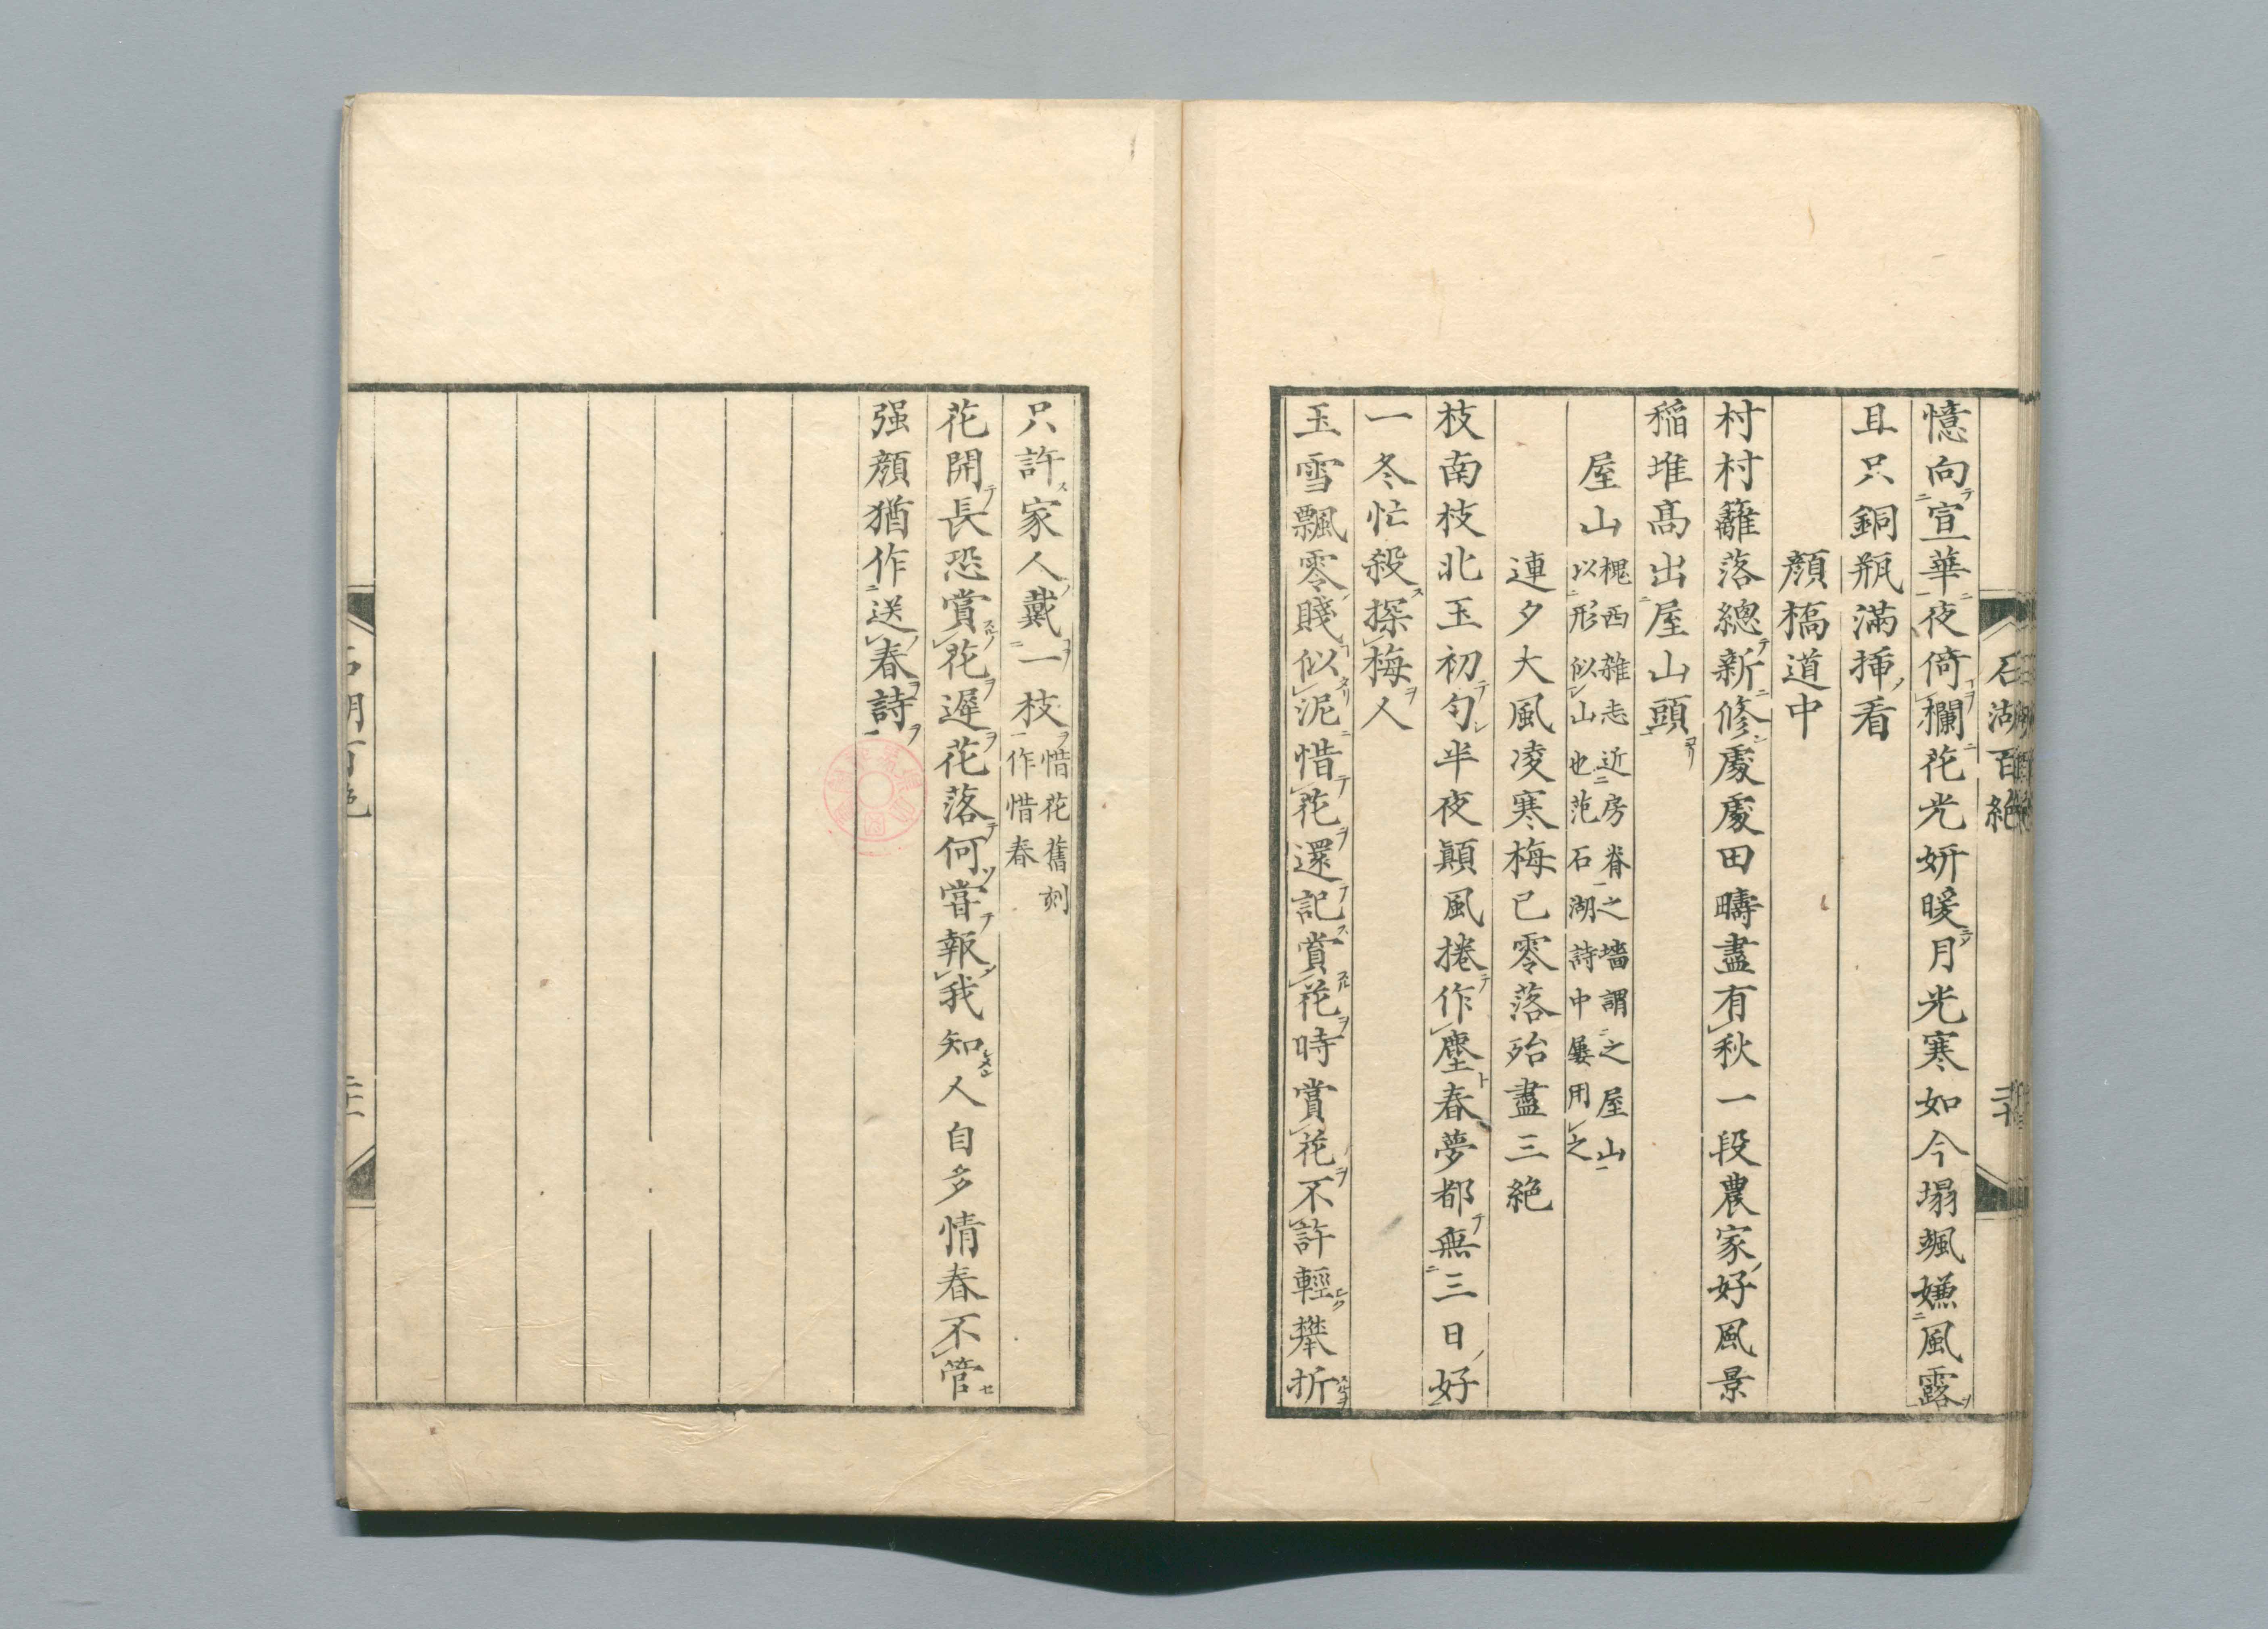 石湖百絶
二十
憶向宣華夜倚欄花光妍暖月光寒如今塌颯嫌風露
且只銅瓶滿揷看
顏橋道中
村村籬落總新修處處田疇盡有秋一段農家好風景
稲堆髙出屋山頭
屋山
槐西雜志近房脊之墻謂之屋山
以形似山也范石湖詩中屢用之
連夕大風凌寒梅已零落殆盡三絶
枝南枝北玉初匀半夜顚風捲作塵春夢都無三日好
一冬忙殺探梅人
玉雪飄零賤似泥惜花還記賞花時賞花不許輕攀折
只許家人戴一枝
惜花舊刻
作惜春
花開長恐賞花遲花落何甞報我知人自多情春不管
强顏猶作送春詩
石湖百絶
二十一